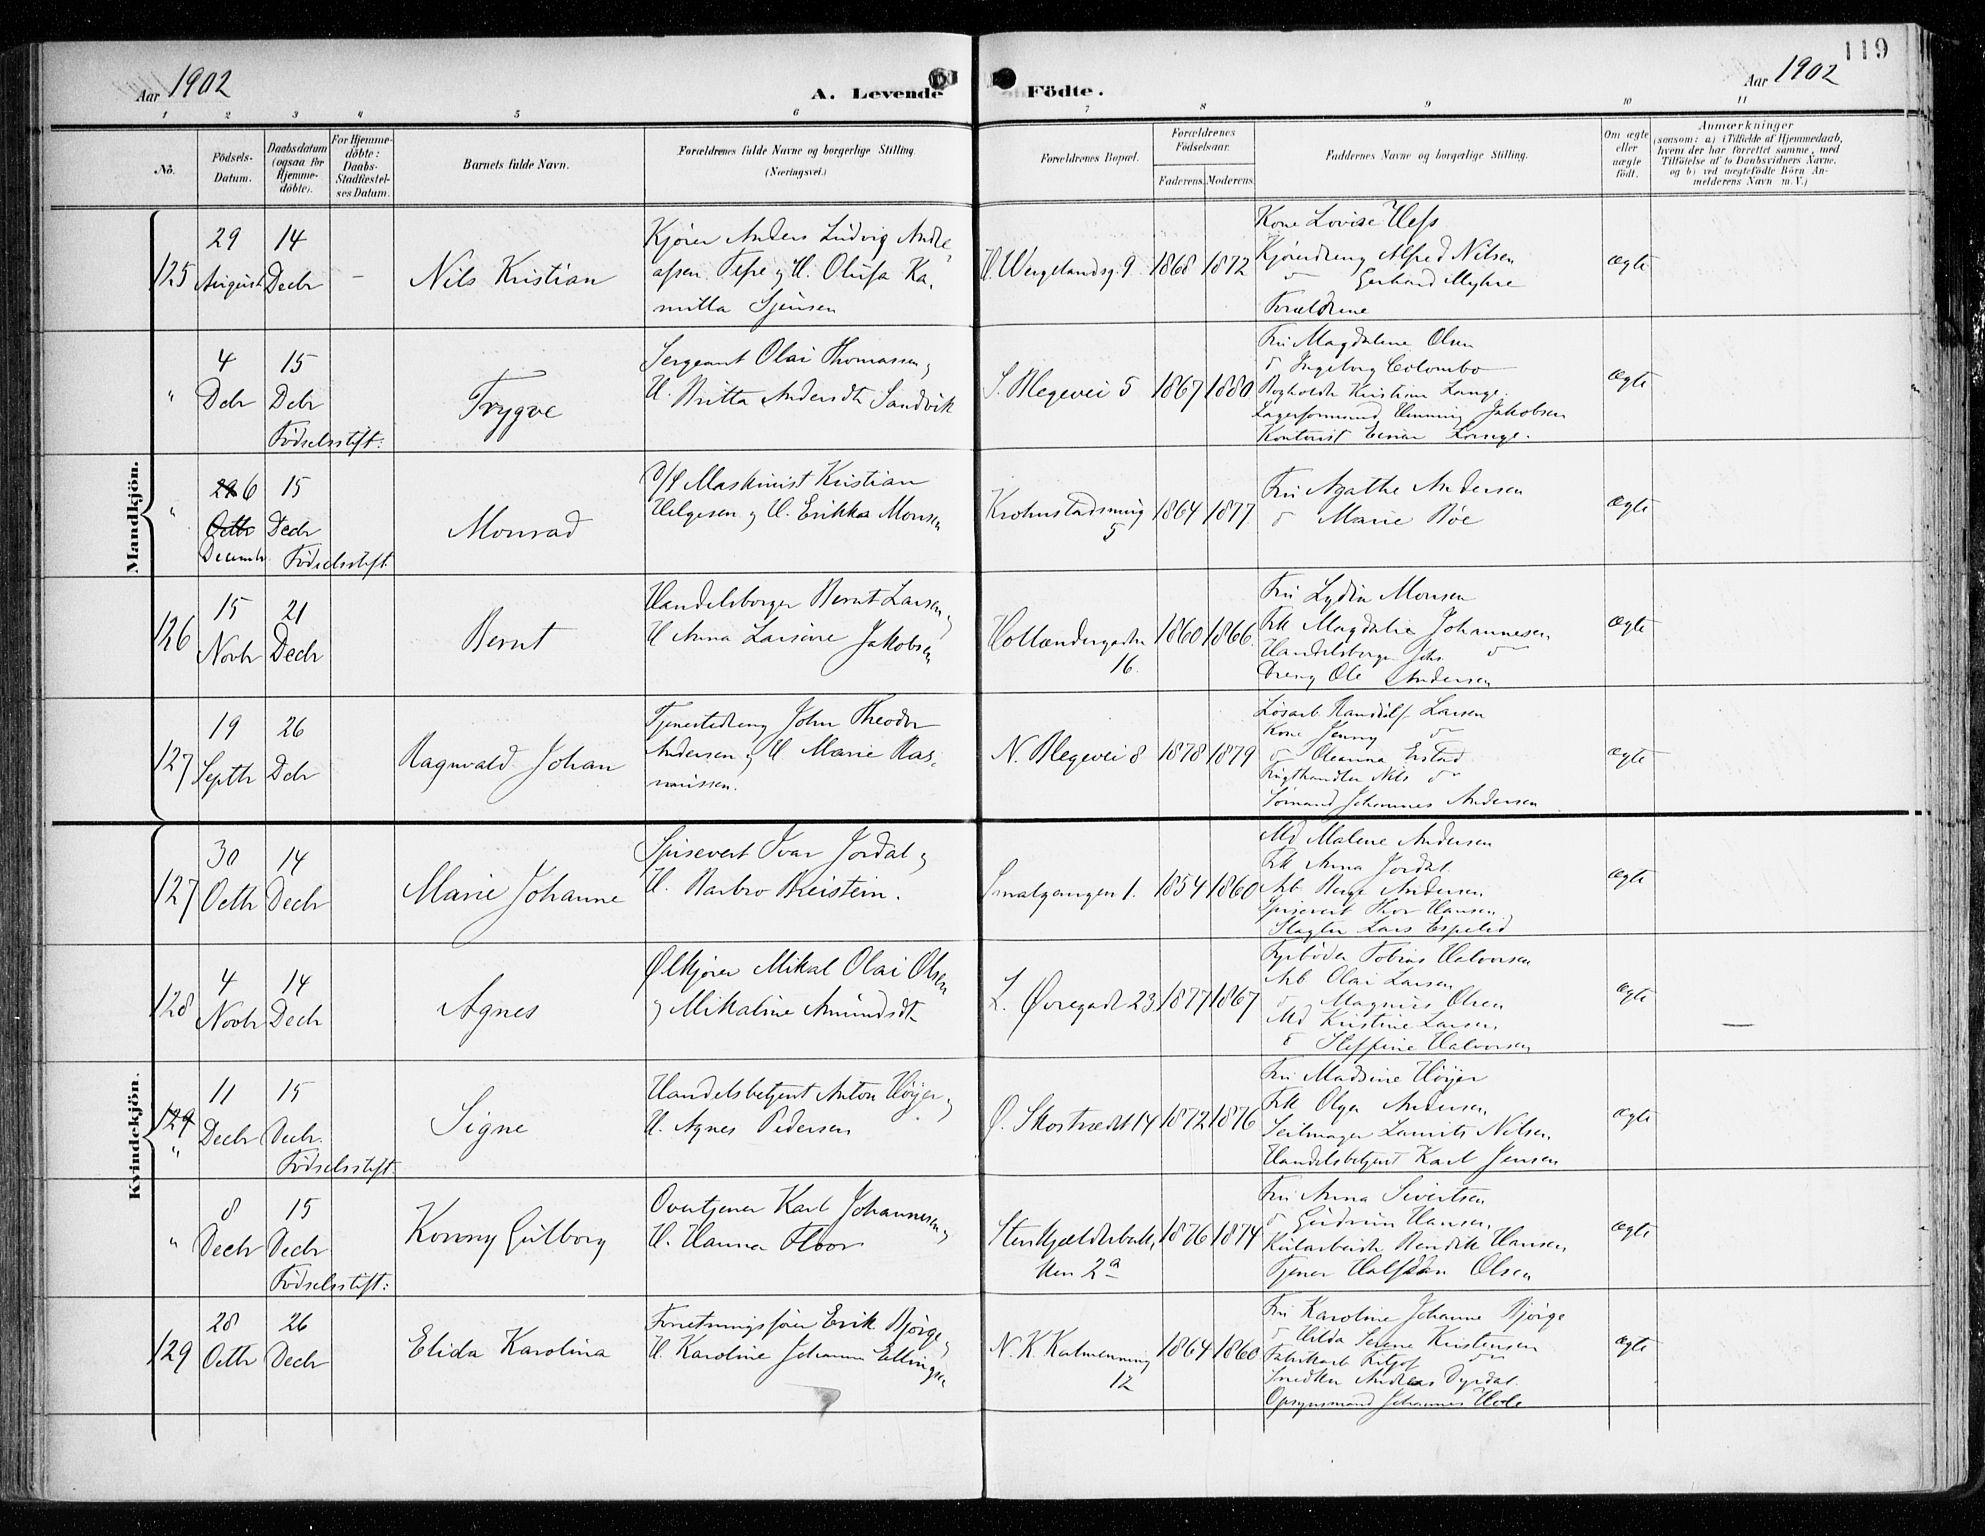 119
Aar 1902
A. Levende Födte.
Aar 1902
1 2 3 4 5 6 7 8 9 10 11
No.
Födsels-Datum.
Daabsdatum (ogsaa for Hjemmedöbte).
For Hjemmedöbte: Daabs-Stadfæstelses Datum.
Barnets fulde Navn.
Forældrenes fulde Navne og borgerlige Stilling. (Næringsvei.)
Forældrenes Bopæl.
Forældrenes Födselsaar.
Faderens. Moderens.
Faddernes Navne og borgerlige Stilling.
Om ægte eller uægte födt.
Anmærkninger
(saasom: a) i Tilfælde af Hjemmedaab, hvem der har forrettet samme, med Tilföielse af to Daabsvidners Navne, og b) ved uægtefödte Börn Anmelderens Navn m. V.)
Mandkjön.
125
29 August
14 Decbr
–
Nils Kristian
Kjører Anders Ludvig Andre
assen Tefre og H. Olufa Ka-
milla Sjursen
H. Wergelandsg. 9
1868 1872
Kone Lovise
Kjøredreng Alfred Nilsen
Gerhard Myhre
Forældrene
ægte
"
4 Debr
15 Debr
Fødselsstift:
Trygve
Sergeant Olai Thomassen og
H. Britta Andersdtr Sandvik
S. Blegevei 5
1867 1880
Fru Magdalene Olsen
d Ingeborg Colombo
Bogholdr Kristian Lange
Lagerformand Henning Jakobsen
Kontorist Einar Lange.
ægte
"
29 6
Octbr
Decembr
15 Decbr
Fødselsstift
Monrad
D/S Maskinist Kristian
Helgesen og H. Erikka Monsen
Krohnstadsmug 5
1864 1877
Fru Agathe Andersen
d Marie Bøe
ægte
126
15 Novbr
21 Decbr
Bernt
Handelsborger Bernt Larsen og
H Anna Larsine Jakobsen
Hollændergaden 16.
1860 1866.
Fru Lydia Monsen
Frk Magdalie Johannesen
Handelsborger Johs. d
Dreng Ole Andersen
ægte
127
19 Septbr
26 Debr
Ragnvald Johan
Tjenestedreng John Theodor
Andersen og H Marie Ras-
mussen.
N. Blegevei 8
1878 1879
Løsarb. Randulf Larsen
Kone Jenny d
d Oleanna Erstad
Frugthandler Nils d
Sømand Johannes Andersen
ægte
Kvindekjön.
127
30 Octbr
14 Decbr
Marie Johanne
Spisevert Ivar Jordal og
H. Barbro Breistein.
Smalgangen 1.
1854 1860
Md Malene Andersen
Frk Anna Jordal
Arb Berge Andersen
Spisevert Thor Hansen
Slagter Lars Espelid
ægte
128
4 Novbr
14 Decbr
Agnes
Ølkjører Mikal Olai Olsen
og Mikaline Amundsdtr
L. Øvregade 23.
1877 1867
Fyrbøder Tobias Halvorsen
Arb Olai Larsen
d Magnus Olsen
Md Kristine Larsen
d Steffine Halvorsen
ægte
–
129
"
11 Decbr
15 Decbr.
Fødselsstift.
Signe
Handelsbetjent Anton Höyer og
H. Agnes Pedersen
Ø. Skostrædet 14
1872 1876
Fru Madsine Höyer
Frk Olga Andersen
Seilmager Laurits Nilsen
Handelsbetjent Karl Jensen
ægte
"
8 Decbr
15 Decbr
Fødselsstift:
Konny Gulborg
Overtjener Karl Johannesen og
H. Hanna Floor
Stenkjælderbak-
ken 2a
1876 1874
Fru Anna Sivertsen
d Gudrun Hansen
Kularbeider Bendik Hansen
Tjener Halfdan Olsen
ægte
129
28 Octbr
26 Decbr
Elida Karolina
Forretningsfører Erik Bjørge og
H. Karoline Johanne Ellingsen
N. K. Kalmenning 12
1864 1860
Fru Karoline Johanne Bjørge
d Hilda Serene Kristensen
Fabrikarb Fritjof d
Snedker Andreas Dyrdal.
Opsynsmand Johannes Hole
ægte